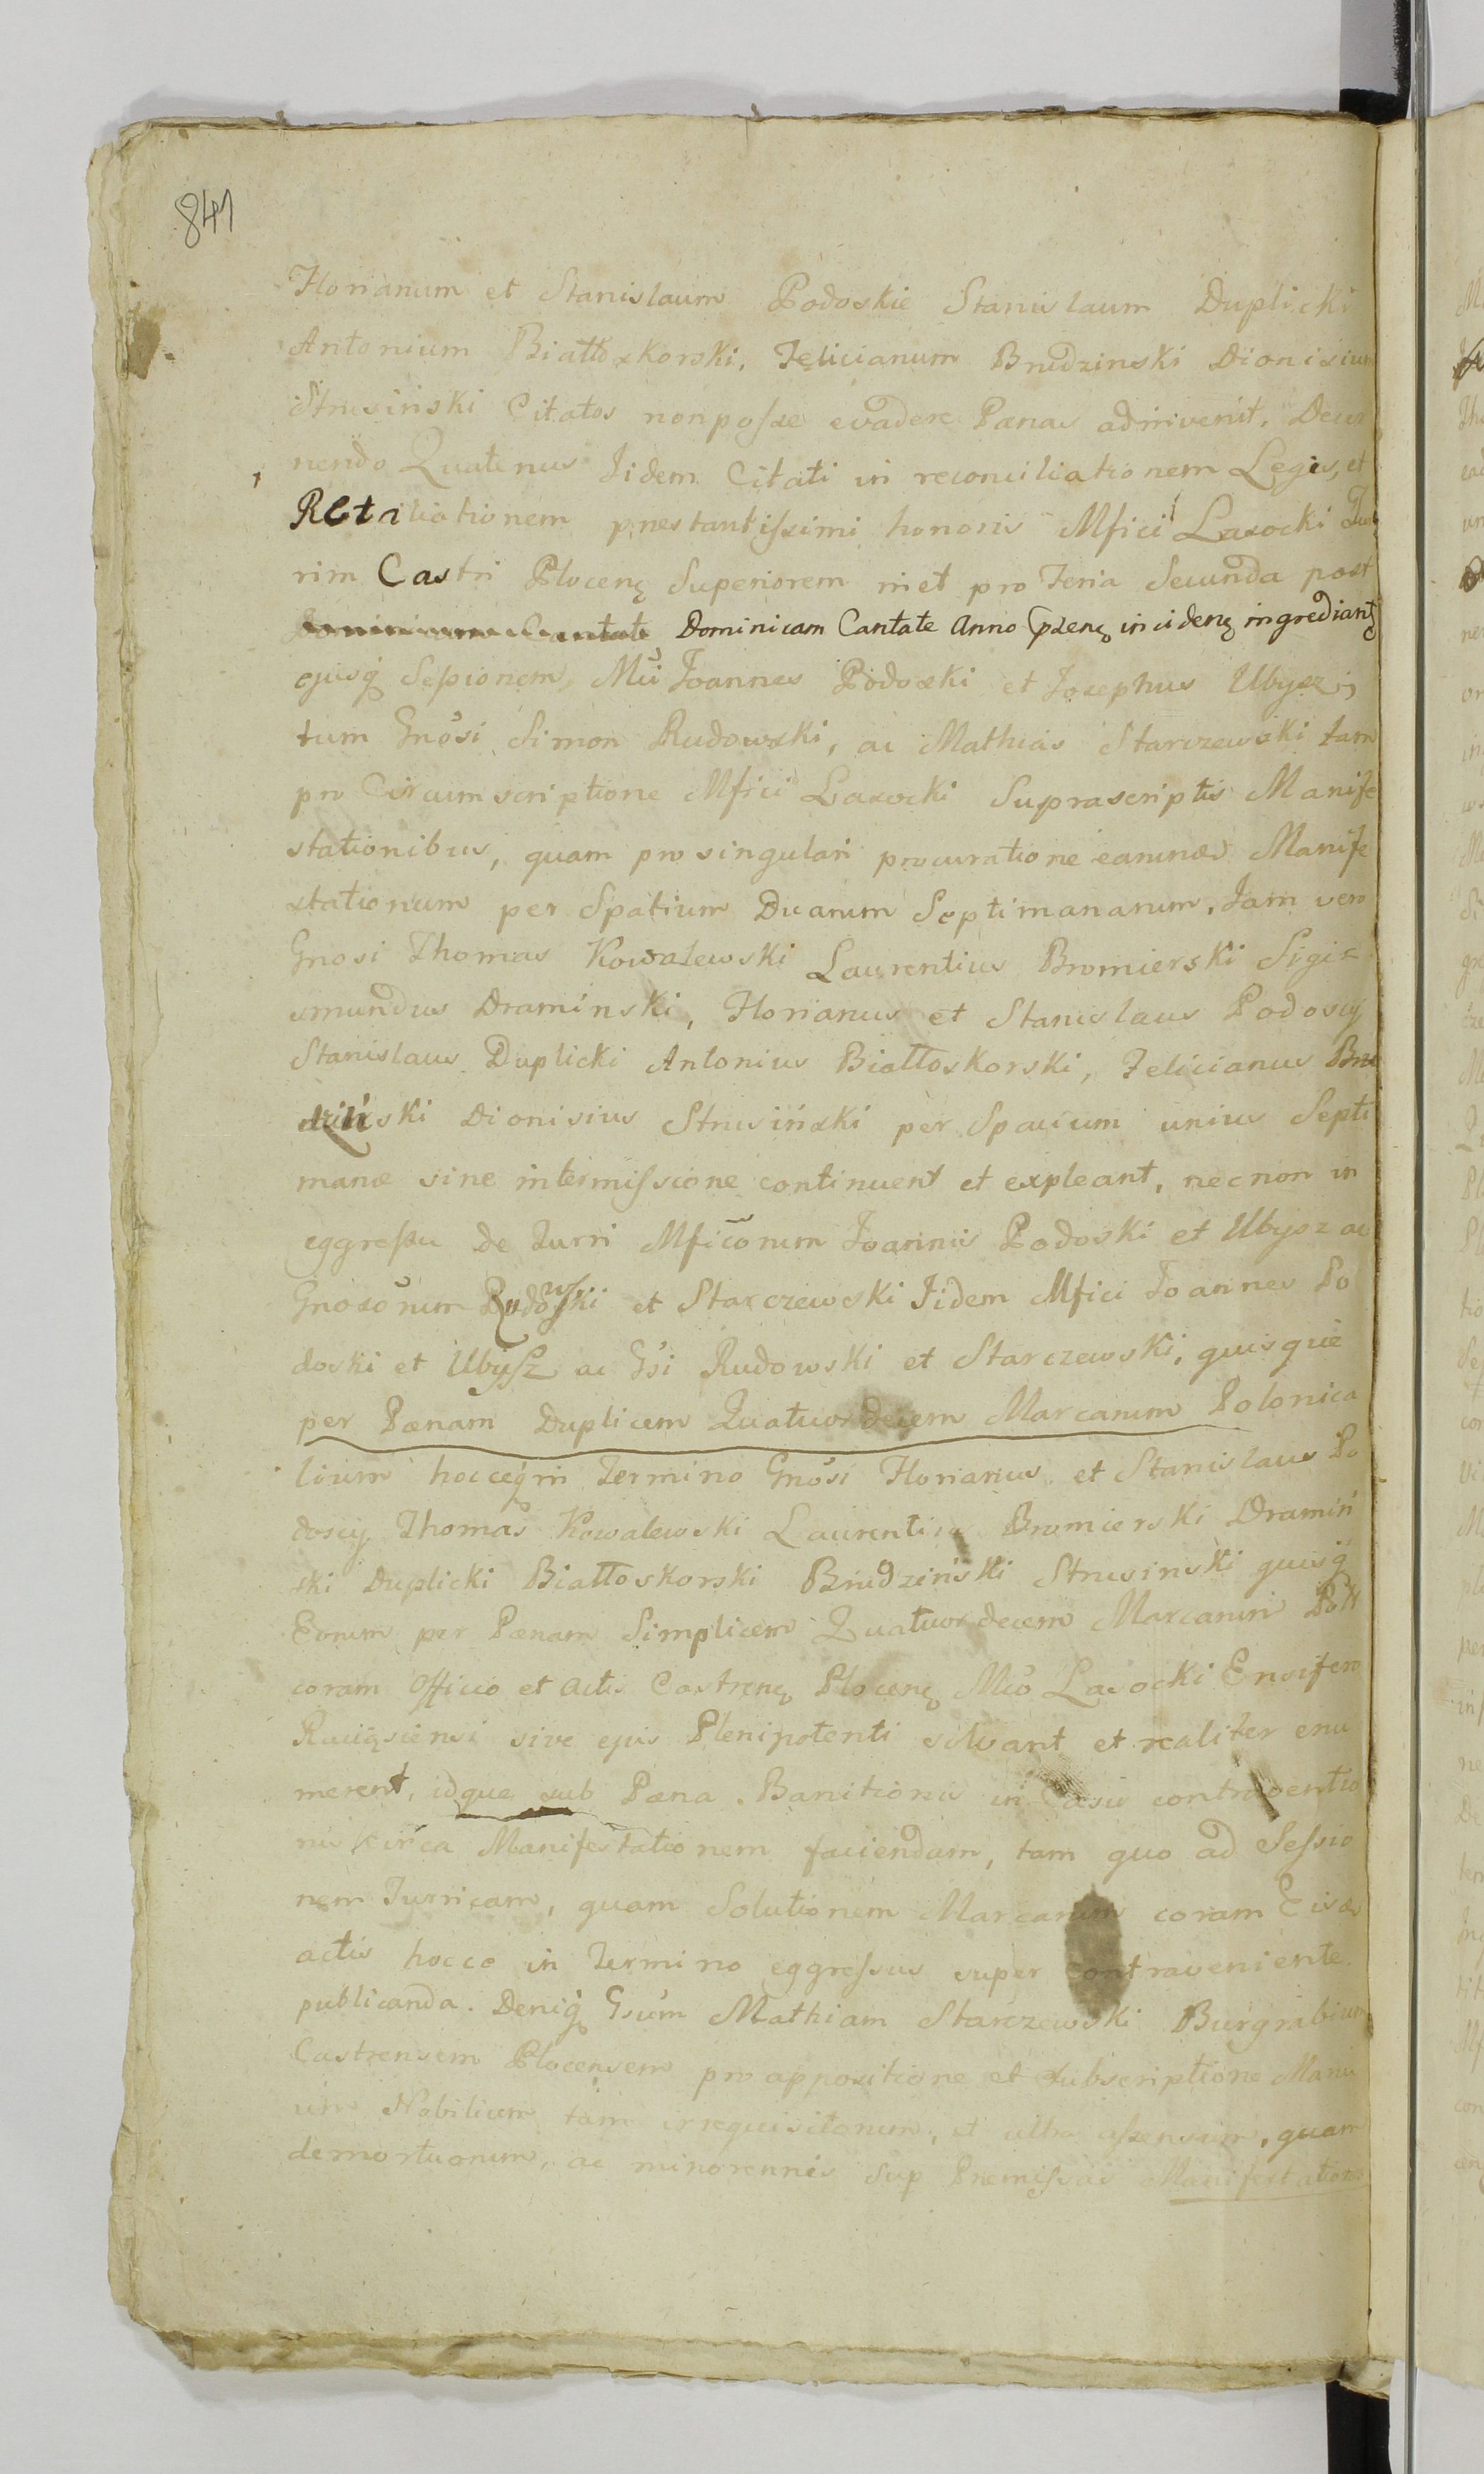 841
Florianum et Stanislaum Podoskie Stanislaum Duplicki
Antonium Białłoskorski, Felicianum Brudzinski Dionisium
Strusiński Citatos non posse evadere Pænas adinvenit, Decer
nendo Quatenus Iidem Citati in reconciliationem Legis, et
Retaliationem præstantissimi honoris Mfici Lasocki Tur
rim Castri Plocen Superiorem niet pro Feria Secunda post
Dominicam Cantate Dominicam Cantate Anno Præsen inciden ingrediant
ejusq Sessionem, Mci Joannes Podoski et Josephus Ubysz,
tum Gnosi Simon Rudowski, ac Mathias Starczewski tam
pro Circumscriptione Mfici Lasocki Suprascriptis Manife
stationibus, quam pro singulari procuratione earumdem Manife
stationum per Spatium Duarum Septimanarum, Jam vero
Gnosi Thomas Kowalewski Laurentius Bromierski Sigis
mundus Draminski, Florianus et Stanislaus Podoscy
Stanislaus Duplicki Antonius Białłoskorski, Felicianus Bru
dziński Dionisius Strusiński per Spacium unius Septi
manæ sine intermissione continuent et expleant, nec non in
eggressu de Turri Mficorum Joannis Podoski et Ubysz ac
Gnosorum Rudowski et Starczewski Iidem Mfici Joannes Po
doski et Ubysz ac Gsi Rudowski et Starczewski, quisque
per Pænam Duplicem Quatuordecem Marcarum Polonica
lium hocceq in Termino Gnosi Florianus et Stanislaus Po
doscy Thomas Kowalewski Laurentius Bromierski Dramiń
ski Duplicki Białłoskorski Brudziński Strusinski quisq
Eorum per Pænam Simplicem Quatuordecem Marcarum Poll
coram Officio et Actis Castren Plocen Mco Lasocki Ensifero
Raciąsiensi sive ejus Plenipotenti solvant et realiter enu
merent, idque sub Pæna Banitionis in Casu contraventio
nis circa Manifestationem faciendam, tam quo ad Sessio
nem Turricam, quam Solutionem Marcarum coram Eisd
actis hocce in Termino eggressus super contraveniente
publicanda. Deniq Gsum Mathiam Starczewski Burgrabium
Castrensem Plocensem pro appositione et subscriptione Manu
um Nobilium tam irrequisitorum, et ultra assensum, quam
demortuorum, ac minorennis sup Præmissas Manifestationes